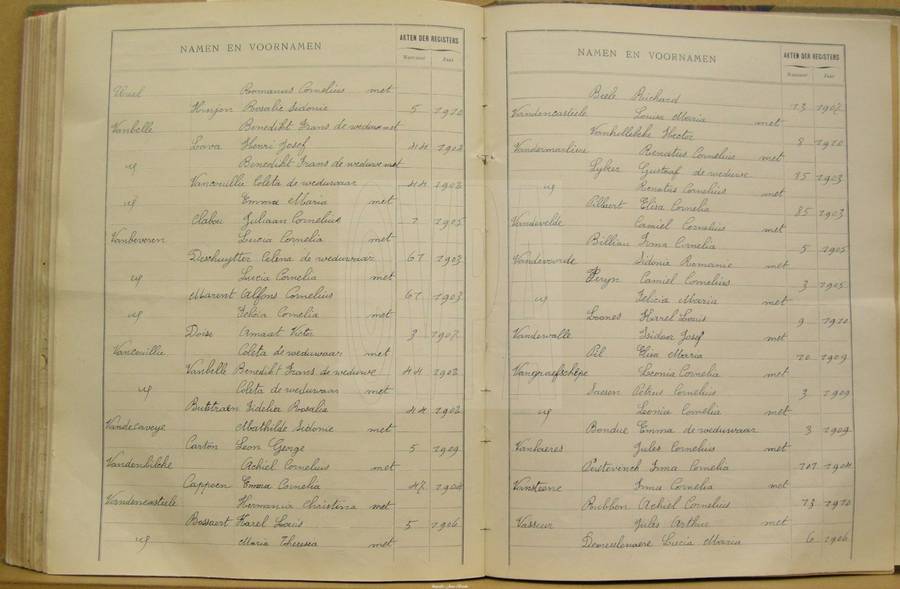 NAMEN EN VOORNAMEN AKTEN DER REGISTERS
Nummer Jaar
Uriel Romanus Cornelius met
Huyon Rosalie Sidonie 5 1910
Vanbelle Benedikt Frans de weduwe met
Lava Henri Josef 44 1902
id Benedikt Frans de weduwe met
Vancouillie Coleta de weduwaar 44 1902
id Emma Maria met
Clabou Juliaan Cornelius 7 1905
Vanbeveren Lucia Cornelia met
Deschuytter Celena de weduwaar 61 1903
id Lucia Cornelia met
Marent Alfons Cornelius 61 1903
id Felicia Cornelia met
Doise Amaat Victor 3 1907
Vancouillie Coleta de weduwaar met
Vanbelle Benedikt Frans de weduwe 44 1902
id Coleta de weduwaar met
Butstraen Fidelia Rosalie 44 1902
Vandecaveye Mathilde Sidonie met
Carton Leon George 5 1909
Vandenbilcke Achiel Cornelius met
Cappoen Emma Cornelia 47 1904
Vandencasteele Hermania Christina met
Bossaert Karel Louis 5 1906
id Maria Theresia met
NAMEN EN VOORNAMEN AKTEN DER REGISTERS
Nummer Jaar
Beele Richard 13 1907
Vandencastiele Louisa Maria met
Vanhillebcke Hector 8 1910
Vandermarliere Renatus Cornelius met
Lyber Gustaaf de weduwe 15 1903
id Renatus Cornelius met
Pillaert Elisa Cornelia 85 1903
Vandevelde Camiel Cornelius met
Billiau Irma Cornelia 5 1905
Vandevoorde Sidonie Romanie met
Feryn Camiel Cornelius 3 1905
id Felicia Maria met
Loones Karel Louis 9 1910
Vandewalle Isidoor Josef met
Pil Elisa Maria 10 1909
Vangraefschepe Leonia Cornelia met
Petrus Cornelius 3 1909
id Leonia Cornelia met
Bondue Emma de weduwaar 3 1909
Vanhaeres Jules Cornelius met
Pustevinck Irma Cornelia 101 1904
Vansteene Irma Cornelia met
Rubben Achiel Cornelius 13 1910
Vasseur Jules Arthur met
Demeulenaere Lucia Maria 6 1906